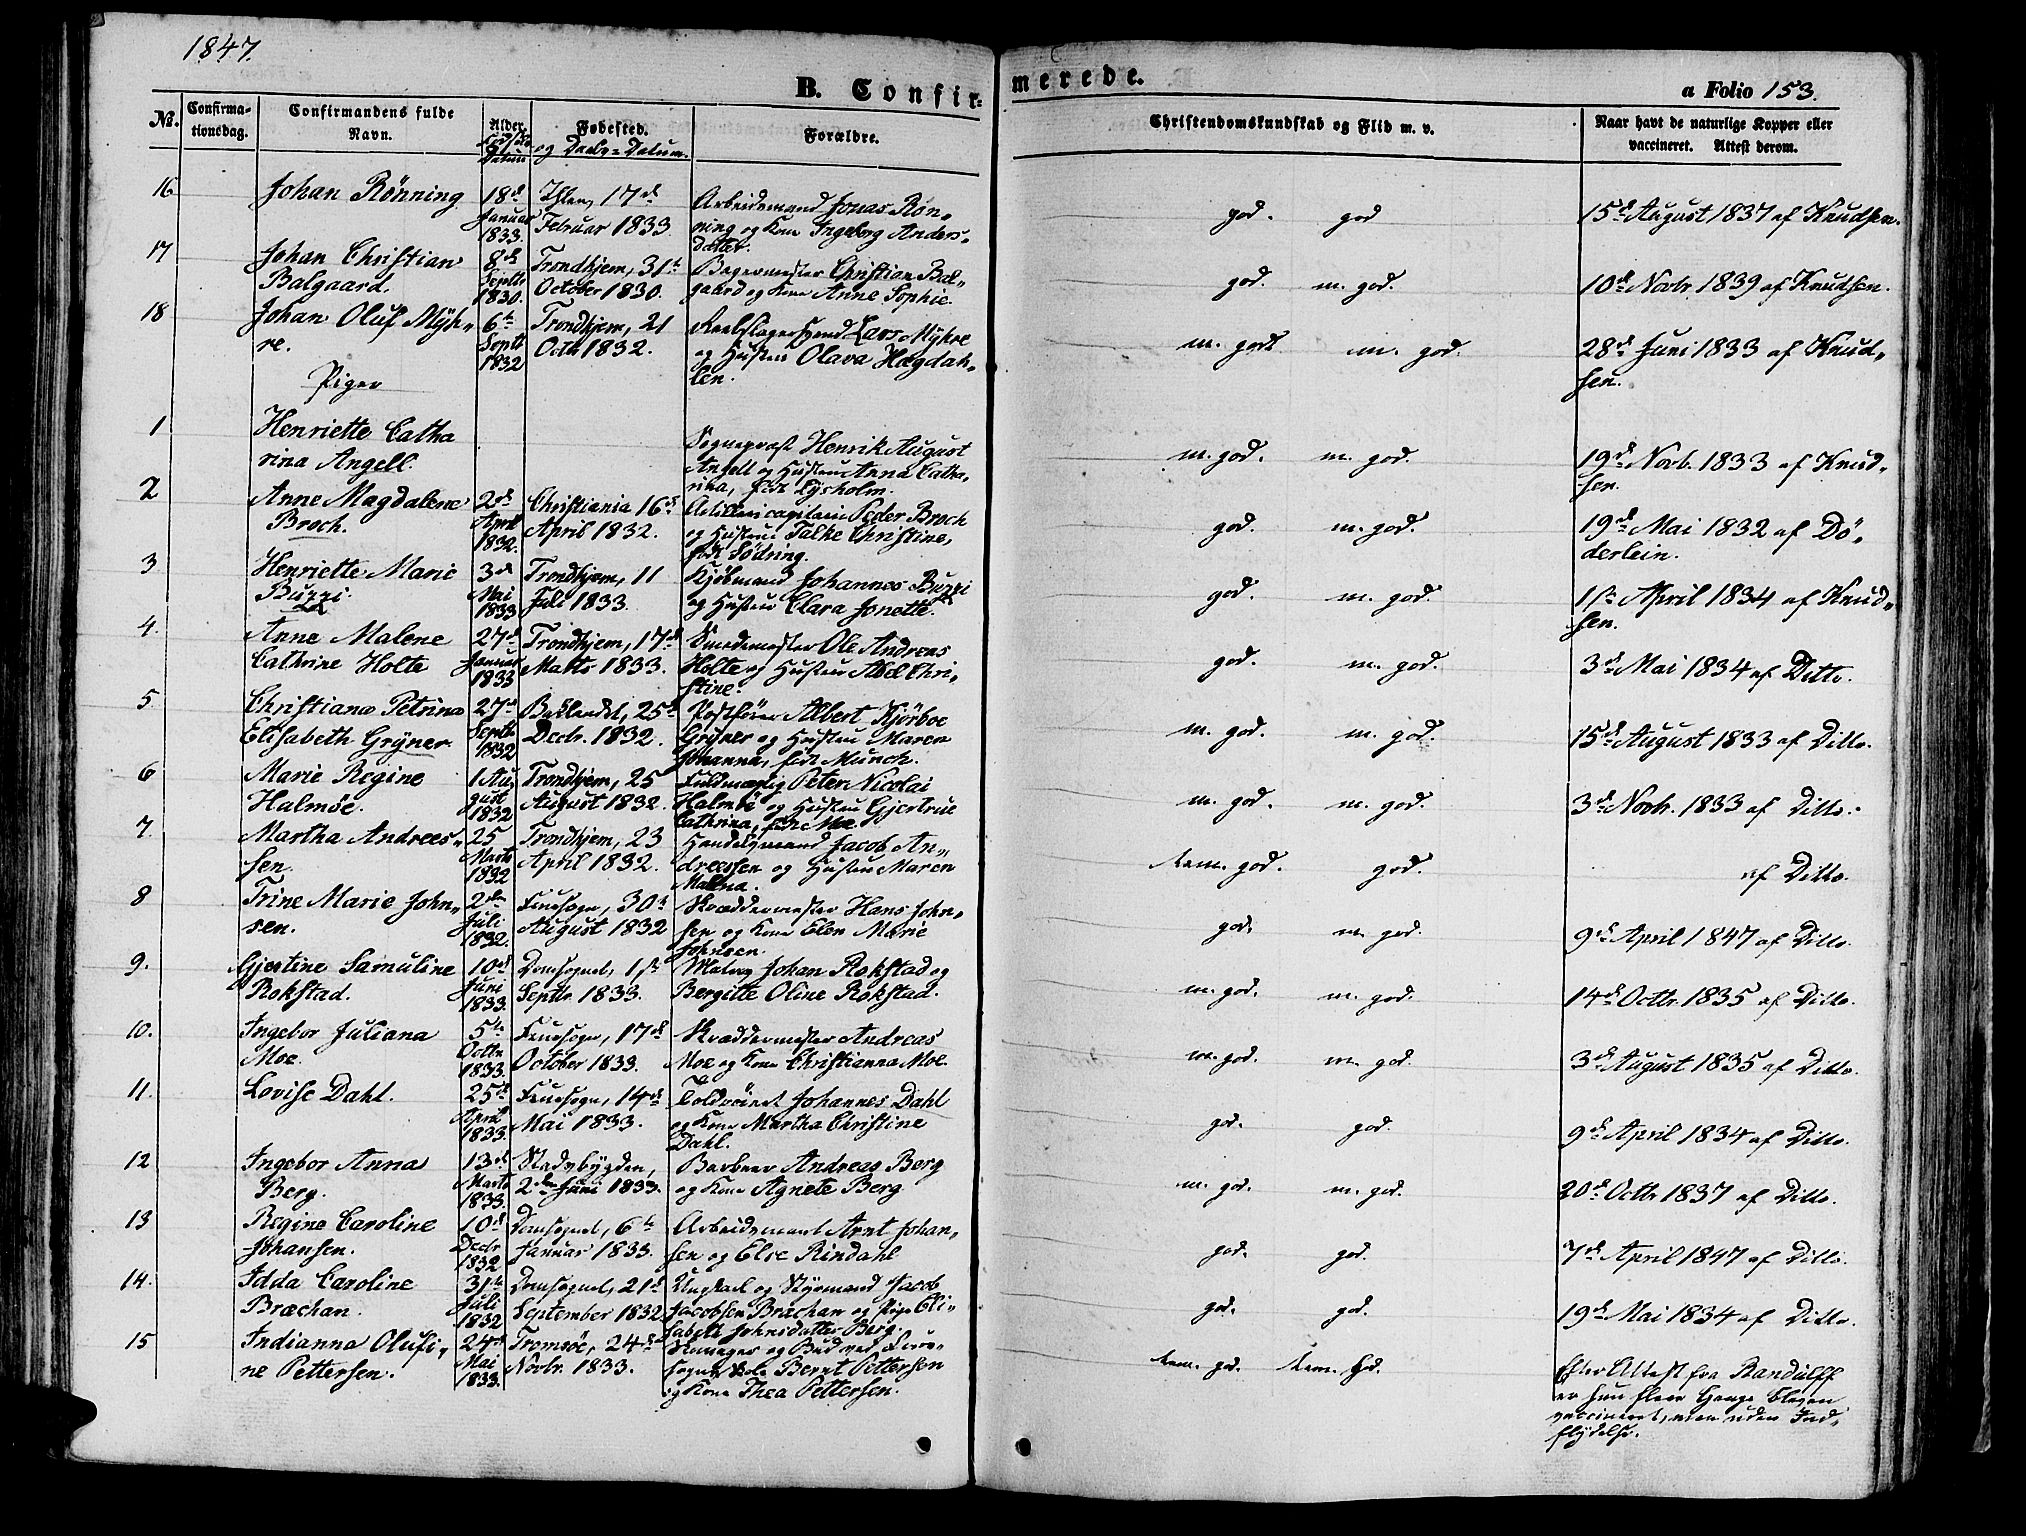 1847.
B. Confir-
merede.
a Folio 153.
No.
Confirma-
tionsdag.
Confirmandens fulde
Navn.
Alder.
Datum
Fødested.
og Daabs-Datum.
Forældre.
Christendomskundskab og Flid m. v.
Naar havt de naturlige Kopper eller
vaccineret. Attest derom.
16 Johan Rönning 18de Ihlen, 17de Arbeidsmand Jonas Røn- god. god 15de August 1837 af Knudsen.
Januar Februar 1833 ning og Kone Ingeborg Anders-
1833. datter.
17 Johan Christian 8de Trondhjem, 31te Bagermester Christian Bal- god. m. god. 10de Novbr. 1839 af Knudsen.
Balgaard. Septbr October 1830. gaard og Kone Anne Sophie.
1830.
18 Johan Oluf Myh- 6te Trondhjem, 21 Reebslagersvend Lars Myhre m. godt m. god. 28de Juni 1833 af Knud-
re. Septbr Octbr 1832. og Hustru Olava Hegdah- sen.
1832 len.
Piger
1 Henriette Catha Sognepræst Henrik August m. god. m. god. 19de Novb. 1833 af Knud-
rina Angell. Angell og Hustru Anna Catha- sen.
rina, født Lysholm.
2 Anne Magdalene 2de Christiania 16de Artillericapitain Peder Broch god. m. god. 19de Mai 1832 af Dö-
Broch. April April 1832. og Hustru Talke Christine, derlein.
1832. født Södring.
3 Henriette Marie 3de Trondhjem, 11 Kjøbmand Johannes Buzzi god. m. god. 1ste April 1834 af Knud-
Buzzi. Mai Juli 1833. og Hustru Clara Jonette. sen.
1833
4. Anne Malene 27de Trondhjem, 17de Smedemester Ole Andreas god. m. god. 3de Mai 1834 af Ditto.
Cathrine Holte Januar Marts 1833. Holte og Hustru Abel Chri-
1833 stine.
5 Christiana Petrina 27de Baklandet, 25de Postfører Albert Kjørboe m. god. m. god. 15de August 1833 af Ditto.
Elisabeth Gryner. Septbr Decbr. 1832. Gryner og Hustru Maren
1832 Johanna, født Munch.
6 Marie Regine 1 Au- Trondhjem, 25 Fuldmægtig Peter Nicolai m. god. m. god. 3de Novbr. 1833 af Ditto.
Halmøe. gust August 1832. Halmöe og Hustru Gjertrue
1832 Cathrina, født Moe.
7. Martha Andrees- 25 Trondhjem, 23 Handelsmand Jacob An- tem. god. god. af Ditto.
sen. Marts April 1832. dreesen og Hustru Maren
1832 Malena.
8 Trine Marie John- 2den Fruesogn, 30te Skræddermester Hans John- god. m. god. 9de April 1847 af Ditto.
sen. Juli August 1832 sen og Kone Elen Marie
1832. Johnsen.
9. Gjertine Samuline 10de Domsognet, 1ste Johan Rokstad og m. god. m. god. 14de Octbr. 1835 af Ditto.
Rokstad. Juni Septbr. 1833. Bergitte Oline Rokstad.
1833.
10. Ingebor Juliana 5te Fruesogn, 17de Skræddermester Andreas m. god. m. god. 3de August 1835 af Ditto.
Moe. Octbr October 1833. Moe og Kone Christianna Moe.
1833.
11. Lovise Dahl. 25de Fruesogn, 14de Johannes Dahl god. god. 9de April 1834 af Ditto.
April Mai 1833. og Kone Martha Christine
1833. Dahl.
12 Ingebor Anna 13de Stadsbygden, Barbeer Andreas Berg m. god. m. god. 20de Octbr 1837 af Ditto.
Berg. Marts 2den Juni 1833. og Kone Agnete Berg
1833.
13 Regine Caroline 10de Domsognet, 6te Arbeidsmand Arnt Johan- god. god. 7de April 1847 af Ditto.
Johansen. Decbr Januar 1833. sen og Else Rindahl
1832
14. Idda Caroline 31te Domsognet, 21de Ungkarl og Styrmand Jacob god. god. 19de Mai 1834 af Ditto.
Bræchan. Juli September 1832 Jacobsen Brachan og Pige Eli-
1832 sabeth Johnsdatter Berg.
15 Indianna Olufi- 24de Tromsøe, 24de og Bud ved Frue- tem. god. tem. god. Efter Attest fra Randulff
ne Pettersen. Mai Novbr. 1833. Bernt Pettersen er hun flere Gange
1833. og Kone Thea Pettersen. vaccineret, men uden Ind-
flydelse.